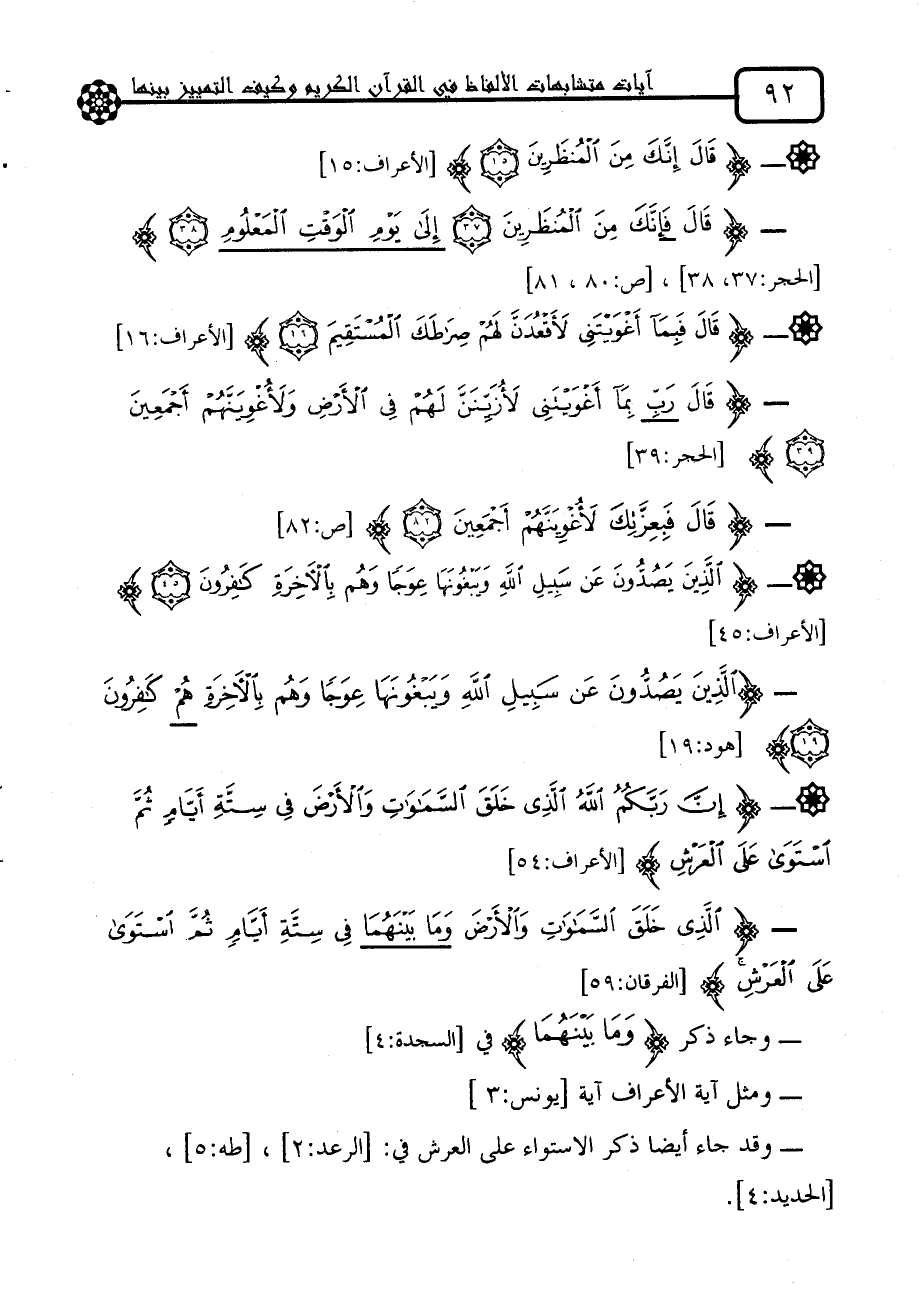 ٩٢
آيات متشابهات الألفاظ في القرآن الكريم وكيف التمييز بينها
ــ ﴿ قَالَ إِنَّكَ مِنَ ٱلْمُنظَرِينَ ١٥ ﴾ [الأعراف:١٥]
ــ ﴿ قَالَ فَإِنَّكَ مِنَ ٱلْمُنظَرِينَ ٣٧ إِلَىٰ يَوْمِ ٱلْوَقْتِ ٱلْمَعْلُومِ ٣٨ ﴾
[الحجر:٣٧، ٣٨] ، [ص:٨٠ ، ٨١]
ــ ﴿ قَالَ فَبِمَآ أَغْوَيْتَنِى لَأَقْعُدَنَّ لَهُمْ صِرَٰطَكَ ٱلْمُسْتَقِيمَ ١٦ ﴾ [الأعراف:١٦]
ــ ﴿ قَالَ رَبِّ بِمَآ أَغْوَيْتَنِى لَأُزَيِّنَنَّ لَهُمْ فِى ٱلْأَرْضِ وَلَأُغْوِيَنَّهُمْ أَجْمَعِينَ
٣٩ ﴾ [الحجر:٣٩]
ــ ﴿ قَالَ فَبِعِزَّتِكَ لَأُغْوِيَنَّهُمْ أَجْمَعِينَ ٨٢ ﴾ [ص:٨٢]
ــ ﴿ ٱلَّذِينَ يَصُدُّونَ عَن سَبِيلِ ٱللَّهِ وَيَبْغُونَهَا عِوَجًا وَهُم بِٱلْآخِرَةِ كَٰفِرُونَ ٤٥ ﴾
[الأعراف:٤٥]
ــ ﴿ ٱلَّذِينَ يَصُدُّونَ عَن سَبِيلِ ٱللَّهِ وَيَبْغُونَهَا عِوَجًا وَهُم بِٱلْآخِرَةِ هُمْ كَٰفِرُونَ
١٩ ﴾ [هود:١٩]
ــ ﴿ إِنَّ رَبَّكُمُ ٱللَّهُ ٱلَّذِى خَلَقَ ٱلسَّمَٰوَٰتِ وَٱلْأَرْضَ فِى سِتَّةِ أَيَّامٍ ثُمَّ
ٱسْتَوَىٰ عَلَى ٱلْعَرْشِ ﴾ [الأعراف:٥٤]
ــ ﴿ ٱلَّذِى خَلَقَ ٱلسَّمَٰوَٰتِ وَٱلْأَرْضَ وَمَا بَيْنَهُمَا فِى سِتَّةِ أَيَّامٍ ثُمَّ ٱسْتَوَىٰ
عَلَى ٱلْعَرْشِ ۚ ﴾ [الفرقان:٥٩]
ــ وجاء ذكر ﴿ وَمَا بَيْنَهُمَا ﴾ في [السجدة:٤]
ــ ومثل آية الأعراف آية [يونس:٣ ]
ــ وقد جاء أيضا ذكر الاستواء على العرش في: [الرعد:٢] ، [طه:٥] ،
[الحديد:٤].